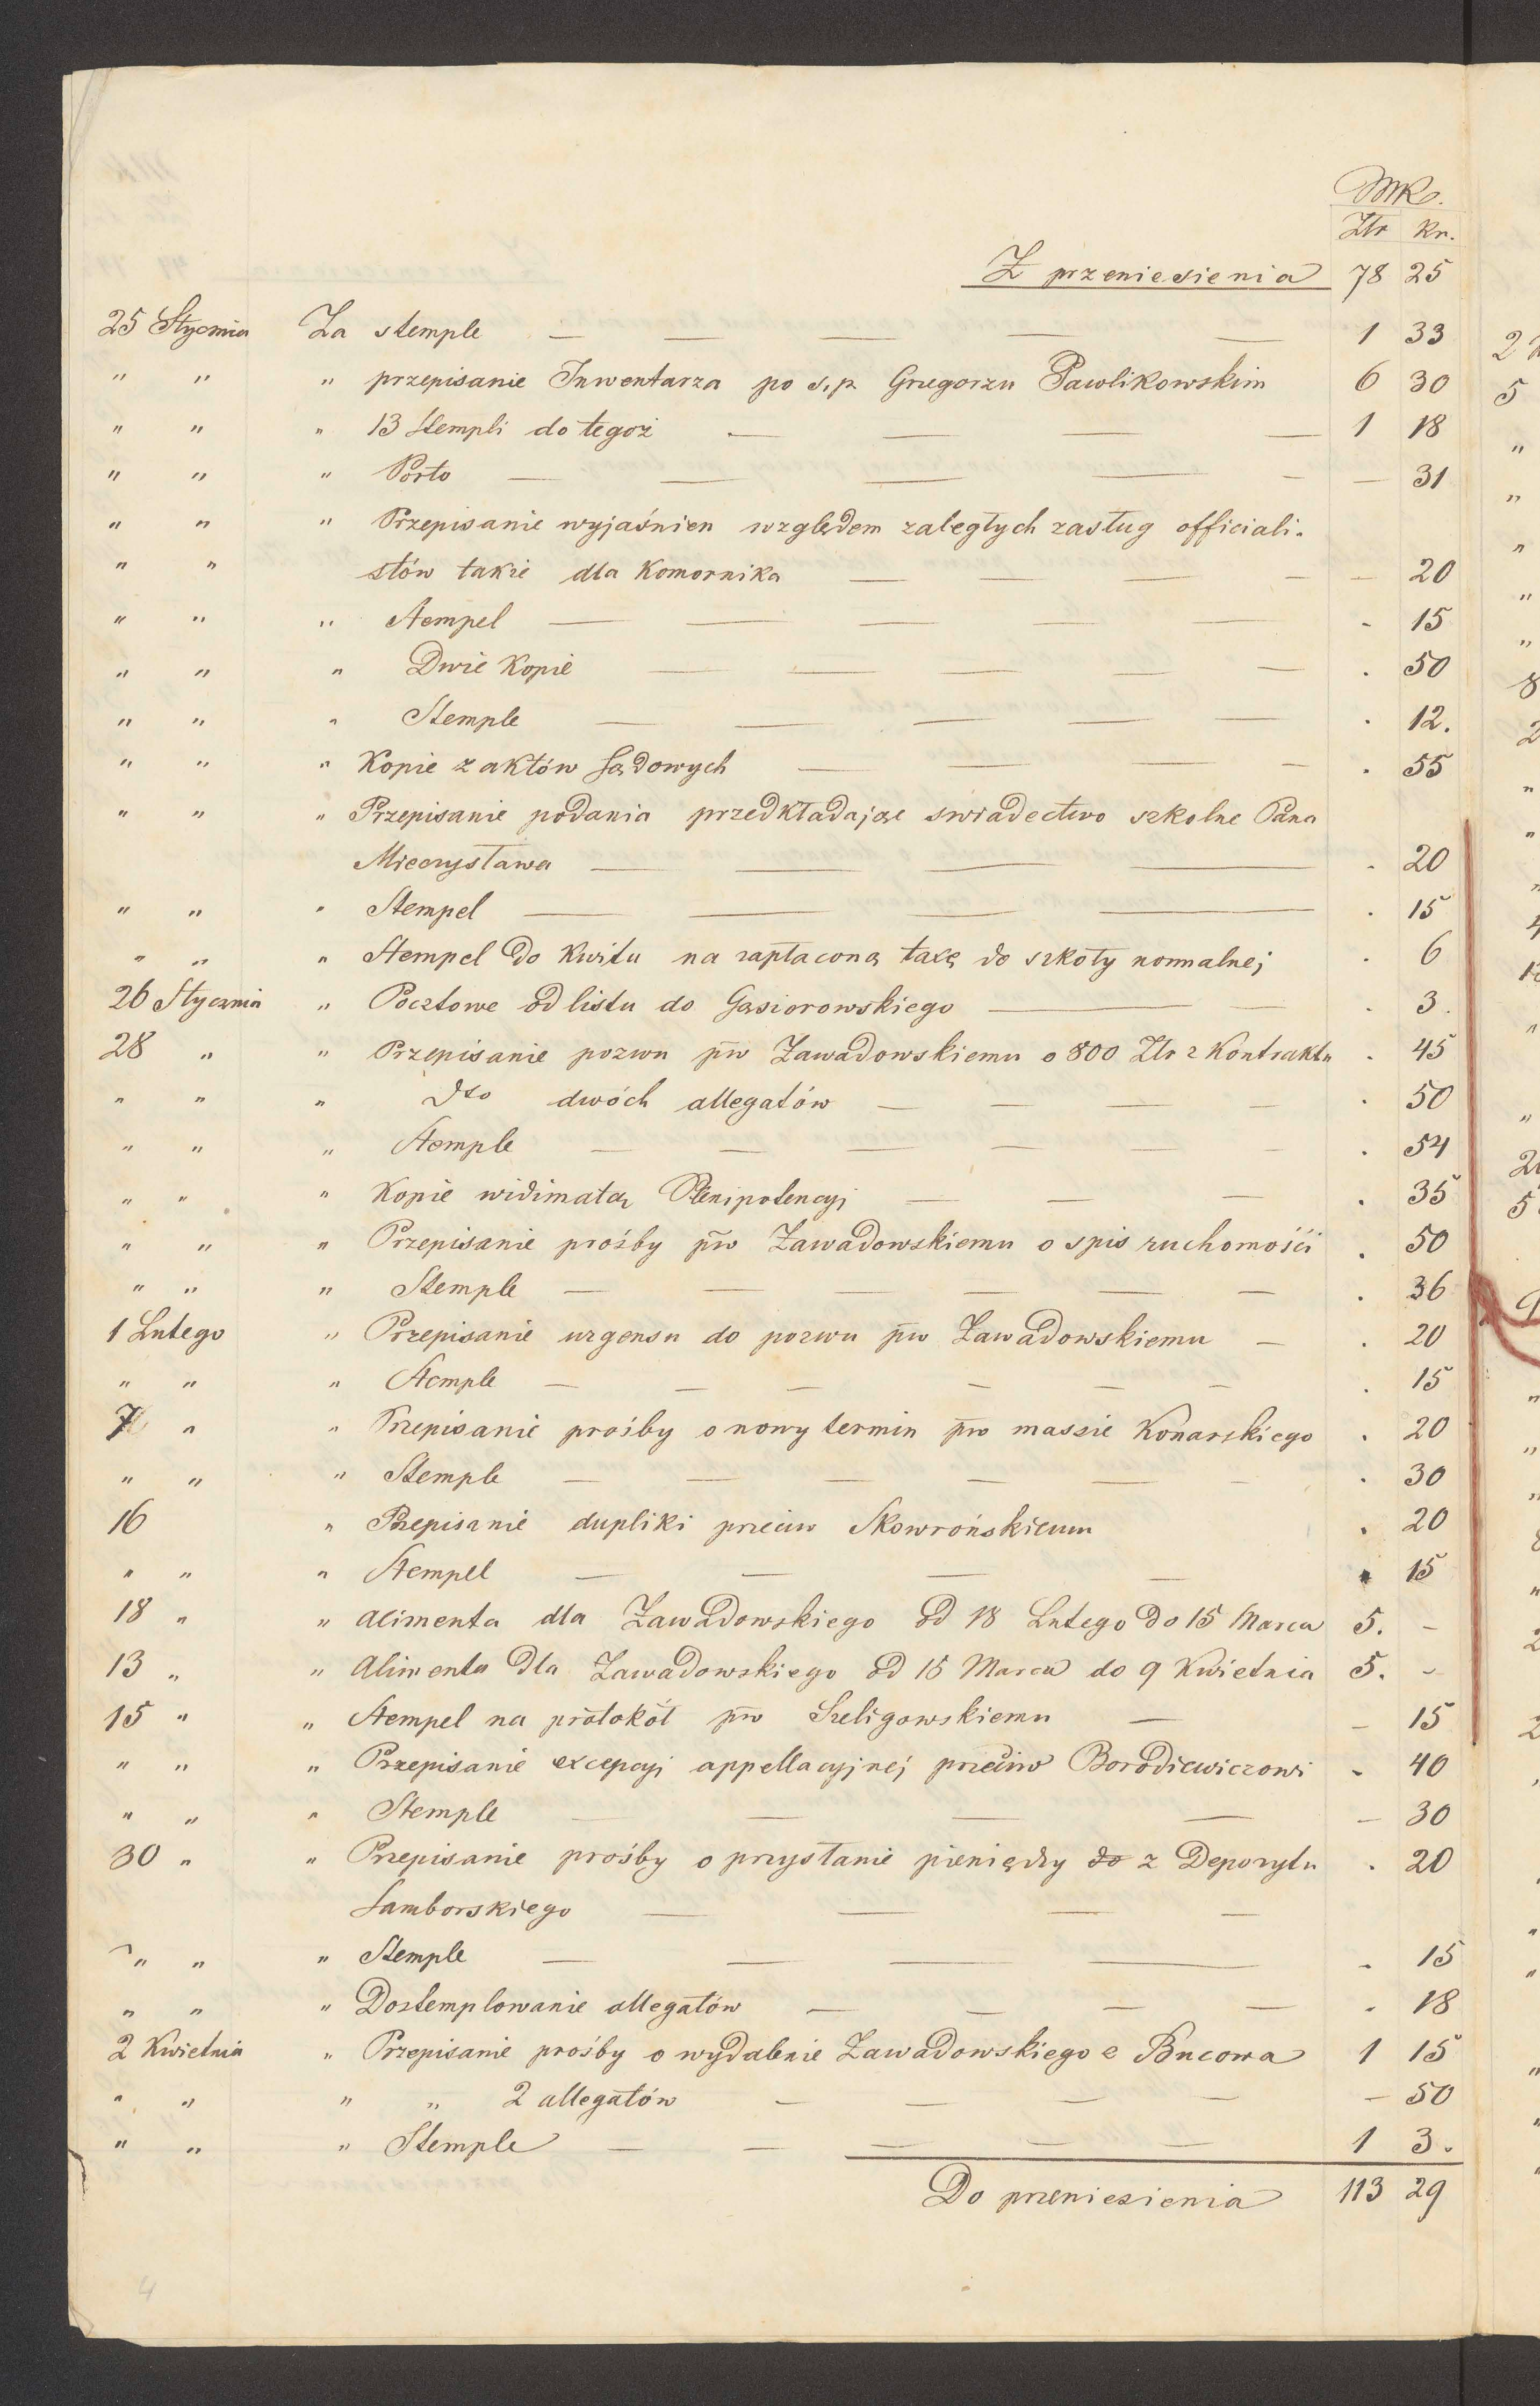 MK.
Złr kr.
Z przeniesienia 78 25
25 Stycznia Za stemple — — — — — 1 33
" " " przepisanie Inwentarza po s.p. Grzegorzu Pawlikowskim 6 30
" " " 13 Stempli do tegoż — — — — 1 18
" " " Porto — — — — — — 31
" " " Przepisanie wyjaśnien względem zaległych zasług officiali-
" " stów także dla Komornika — — — — — 20
" " " Stempel — — — — — - 15
" " " Dwie Kopie — — — — — . 50
" " " Stemple — — — — — . 12.
" " " Kopie z aktów Sądowych — — — — . 55
" " " Przepisanie podania przedkładające swiadectwo szkolne Pana
Mieczysława — — — — - 20
" " " Stempel — — — — . 15
" " " Stempel do kwitu na zapłaconą taxę do szkoły normalnej . 6
26 Stycznia " Pocztowe od listu do Gąsiorowskiego — — . 3.
28 " " Przepisanie pozwu pw Zawadowskiemu o 800 Złr z Kontraktu . 45
" " " dto dwóch allegatów — — — — . 50
" " " Stemple — — — — — — . 54
" " " Kopie widimatą Plenipotencyi — — — . 35
" " " Przepisanie prośby pw Zawadowskiemu o spis ruchomości . 50
" " " Stemple — — — — — — . 36
1 Lutego " Przepisanie urgensu do pozwu pw Zawadowskiemu — . 20
" " " Stemple — — — — — — . 15
7 " " Przepisanie prośby o nowy termin pw massie Konarskiego . 20
" " " Stemple — — — — — — . 30
16 " Przepisanie dupliki przeciw Skowrońskiemu . 20
" " " Stempel — — — — . 15
18 " " Alimenta dla Zawadowskiego od 18 Lutego do 15 Marca 5. -
13 " " Alimenta dla Zawadowskiego od 15 Marca do 9 Kwietnia 5. -
15 " " Stempel na protokół pw Szeligowskiemu — — 15
" " " Przepisanie excepcyi appellacyjnej przeciw Borodiewiczowi - 40
" " " Stemple — — — — — 30
30 " " Przepisanie prośby o przysłanie pieniędzy do z Depozytu . 20
Samborskiego — — — —
" " " Stemple — — — — - 15
" " " Dostemplowanie allegatów — — — — . 18
2 Kwietnia " Przepisanie prośby o wydalenie Zawadowskiego z Bucowa 1 15
" " " " 2 allegatów — — — — — 50
" " " Stemple — — — — — 1 3.
Do przeniesienia 113 29
4